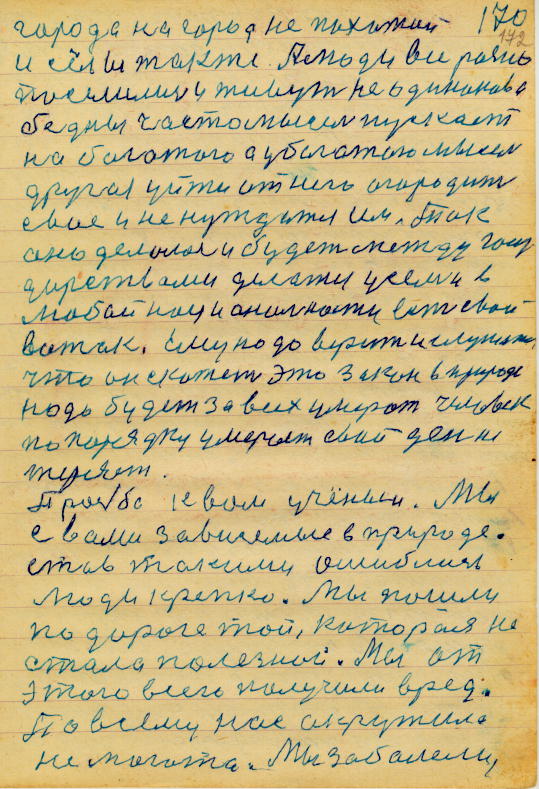 города на город не похожой 170
172
и сёлы также. А люди все ровно
поселилися и живут не одинаково
бедны часто мысел пускает
на богатого а у богатого мысел
другая уйти от него огородит
свае и не нуждатся им. Так
оно делолося и будет между госу
дарствами делатся усеми в
любой национальности ест свой
вожак. Ему надо верит и слушат
что он скажет это закон в природе
надо будет за всех умерат человек
по порядку умерает свой ден не
теряет.
Прозба к вам учёныи. Мы
с вами зависемые в природе.
став такими ошиблися
люди крепко. Мы пошли
по дороге той, которая не
стала полезной. Мы от
этого всего получили вред.
По всему нас окружила
не могота. Мы заболели,